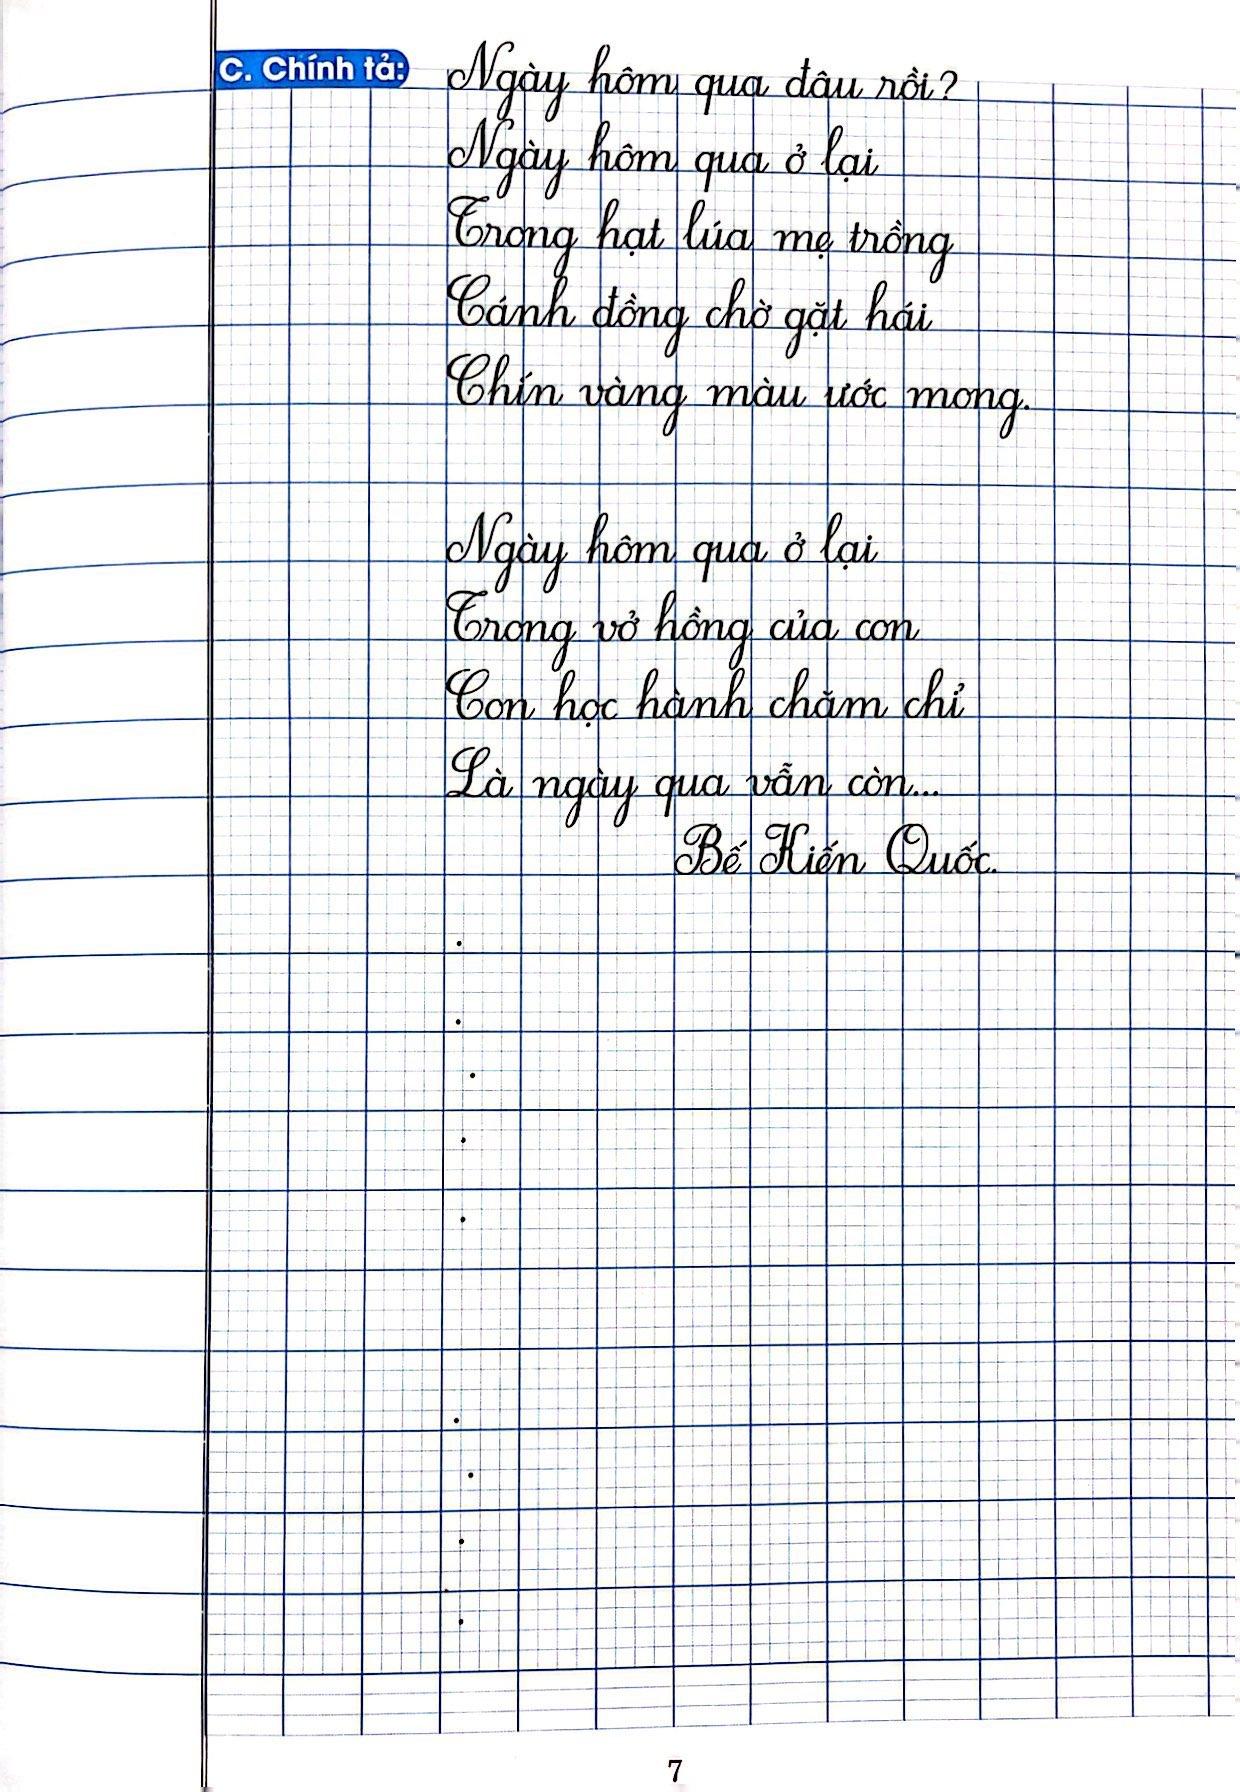 C. Chính tả:
Ngày hôm qua đâu rồi?
Ngày hôm qua ở lại
Trong hạt lúa mẹ trồng
Cánh đồng chờ gặt hái
Chín vàng màu ước mong.
Ngày hôm qua ở lại
Trong vở hồng của con
Con học hành chăm chỉ
Là ngày qua vẫn còn...
Bế Kiến Quốc.
7